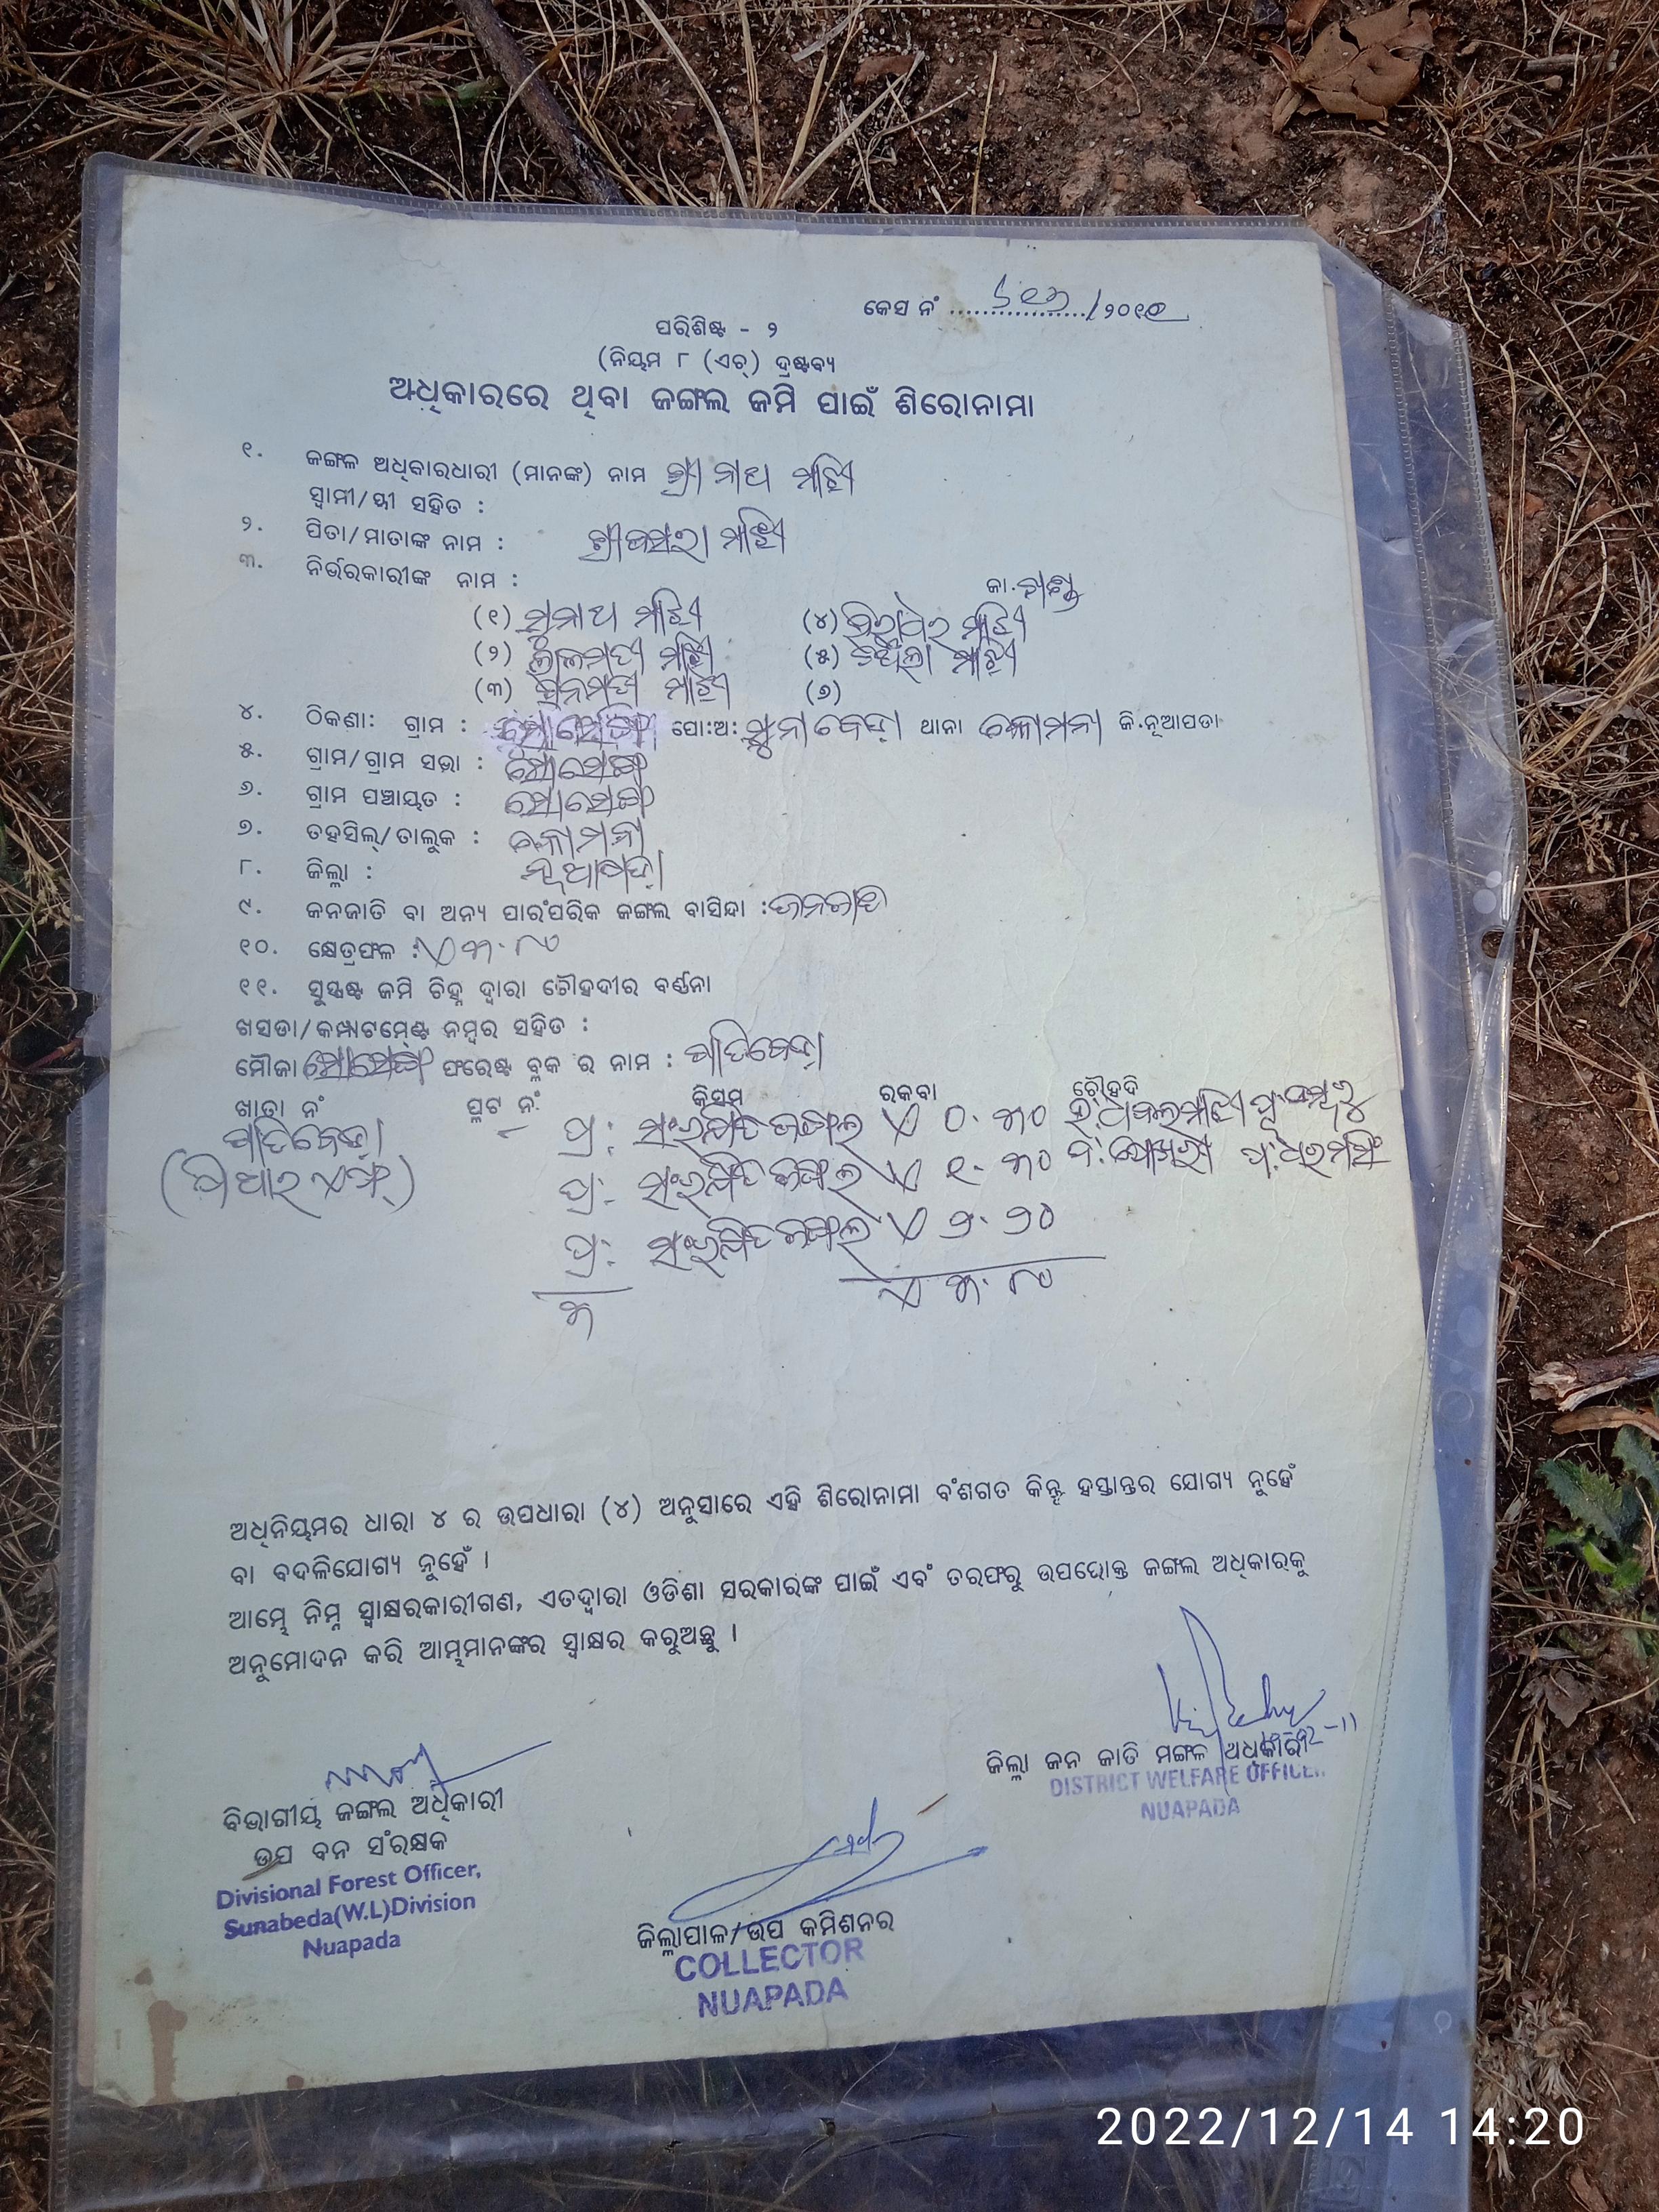 କେସ ନଂ ................./୨୦୧୧
ପରିଶିଷ୍ଟ - ୨
(ନିୟମ ୮ (ଏଚ୍) ଦ୍ରଷ୍ଟବ୍ୟ
ଅଧିକାରରେ ଥିବା ଜଙ୍ଗଲ ଜମି ପାଇଁ ଶିରୋନାମା
୧. ଜଙ୍ଗଲ ଅଧିକାରଧାରୀ (ମାନଙ୍କ) ନାମ ଶ୍ରୀ ନାଥ ମାଝି
ସ୍ୱାମୀ/ସ୍ତ୍ରୀ ସହିତ :
୨. ପିତା/ମାତାଙ୍କ ନାମ : ମାଝି
୩. ନିର୍ଭରକାରୀଙ୍କ ନାମ :
କା.
(୧) ସୁନାଥ ମାଝି (୪) ମାଝି
(୨) ଲାଲମତୀ ମାଝି (୫) ମାଝି
(୩) ମାଝି (୬)
୪. ଠିକଣା: ଗ୍ରାମ : ସୋସେଙ୍ଗ ପୋ:ଅ: ସୁନାବେଡ଼ା ଥାନା କୋମନା ଜି.ନୂଆପଡା
୫. ଗ୍ରାମ/ଗ୍ରାମ ସଭା : ସୋସେଙ୍ଗ
୬. ଗ୍ରାମ ପଞ୍ଚାୟତ : ସୋସେଙ୍ଗ
୭. ତହସିଲ୍/ତାଲୁକ : କୋମନା
୮. ଜିଲ୍ଲା : ନୂଆପଡ଼ା
୯. ଜନଜାତି ବା ଅନ୍ୟ ପାରଂପରିକ ଜଙ୍ଗଲ ବାସିନ୍ଦା : ଜନଜାତି
୧୦. କ୍ଷେତ୍ରଫଳ : ଏ ୩.୮୦
୧୧. ସୁସ୍ପଷ୍ଟ ଜମି ଚିହ୍ନ ଦ୍ୱାରା ଚୌହଦୀର ବର୍ଣ୍ଣନା
ଖସଡା/କମ୍ପାଟମେଣ୍ଟ ନମ୍ବର ସହିତ :
ମୌଜା ସୋସେଙ୍ଗ ଫରେଷ୍ଟ ବ୍ଳକ ର ନାମ : ପାତିବେଡ଼ା
ଖାତା ନଂ ପ୍ଳଟ ନଂ କିସମ ରକବା ଚୌହଦି
ପାତିବେଡ଼ା ପ୍ର: ସଂରକ୍ଷିତ ଜଙ୍ଗଲ ଏ ୦.୩୦ ଉ:ଧବଲ ମାଝି
(ପି ଆର ଏଫ୍) ପ୍ର: ସଂରକ୍ଷିତ ଜଙ୍ଗଲ ଏ ୧.୩୦ ଦ:ପୋଖରୀ ପ:ଧରମସିଂ
ପ୍ର: ସଂରକ୍ଷିତ ଜଙ୍ଗଲ ଏ ୨.୨୦
୩ ଏ ୩.୮୦
ଅଧିନିୟମର ଧାରା ୪ ର ଉପଧାରା (୪) ଅନୁସାରେ ଏହି ଶିରୋନାମା ବଂଶଗତ କିନ୍ତୁ ହସ୍ତାନ୍ତର ଯୋଗ୍ୟ ନୁହେଁ
ବା ବଦଳିଯୋଗ୍ୟ ନୁହେଁ ।
ଆମ୍ଭେ ନିମ୍ନ ସ୍ୱାକ୍ଷରକାରୀଗଣ, ଏତଦ୍ୱାରା ଓଡିଶା ସରକାରଙ୍କ ପାଇଁ ଏବଂ ତରଫରୁ ଉପରୋକ୍ତ ଜଙ୍ଗଲ ଅଧିକାରକୁ
ଅନୁମୋଦନ କରି ଆମ୍ଭମାନଙ୍କର ସ୍ୱାକ୍ଷର କରୁଅଛୁ ।
ଜିଲ୍ଲା ଜନ ଜାତି ମଙ୍ଗଳ ଅଧିକାରୀ
DISTRICT WELFARE OFFICER
NUAPADA
ବିଭାଗୀୟ ଜଙ୍ଗଲ ଅଧିକାରୀ
ଉପ ବନ ସଂରକ୍ଷକ
Divisional Forest Officer,
Sunabeda(W.L)Division
Nuapada
ଜିଲ୍ଲାପାଳ/ଉପ କମିଶନର
COLLECTOR
NUAPADA
2022/12/14 14:20